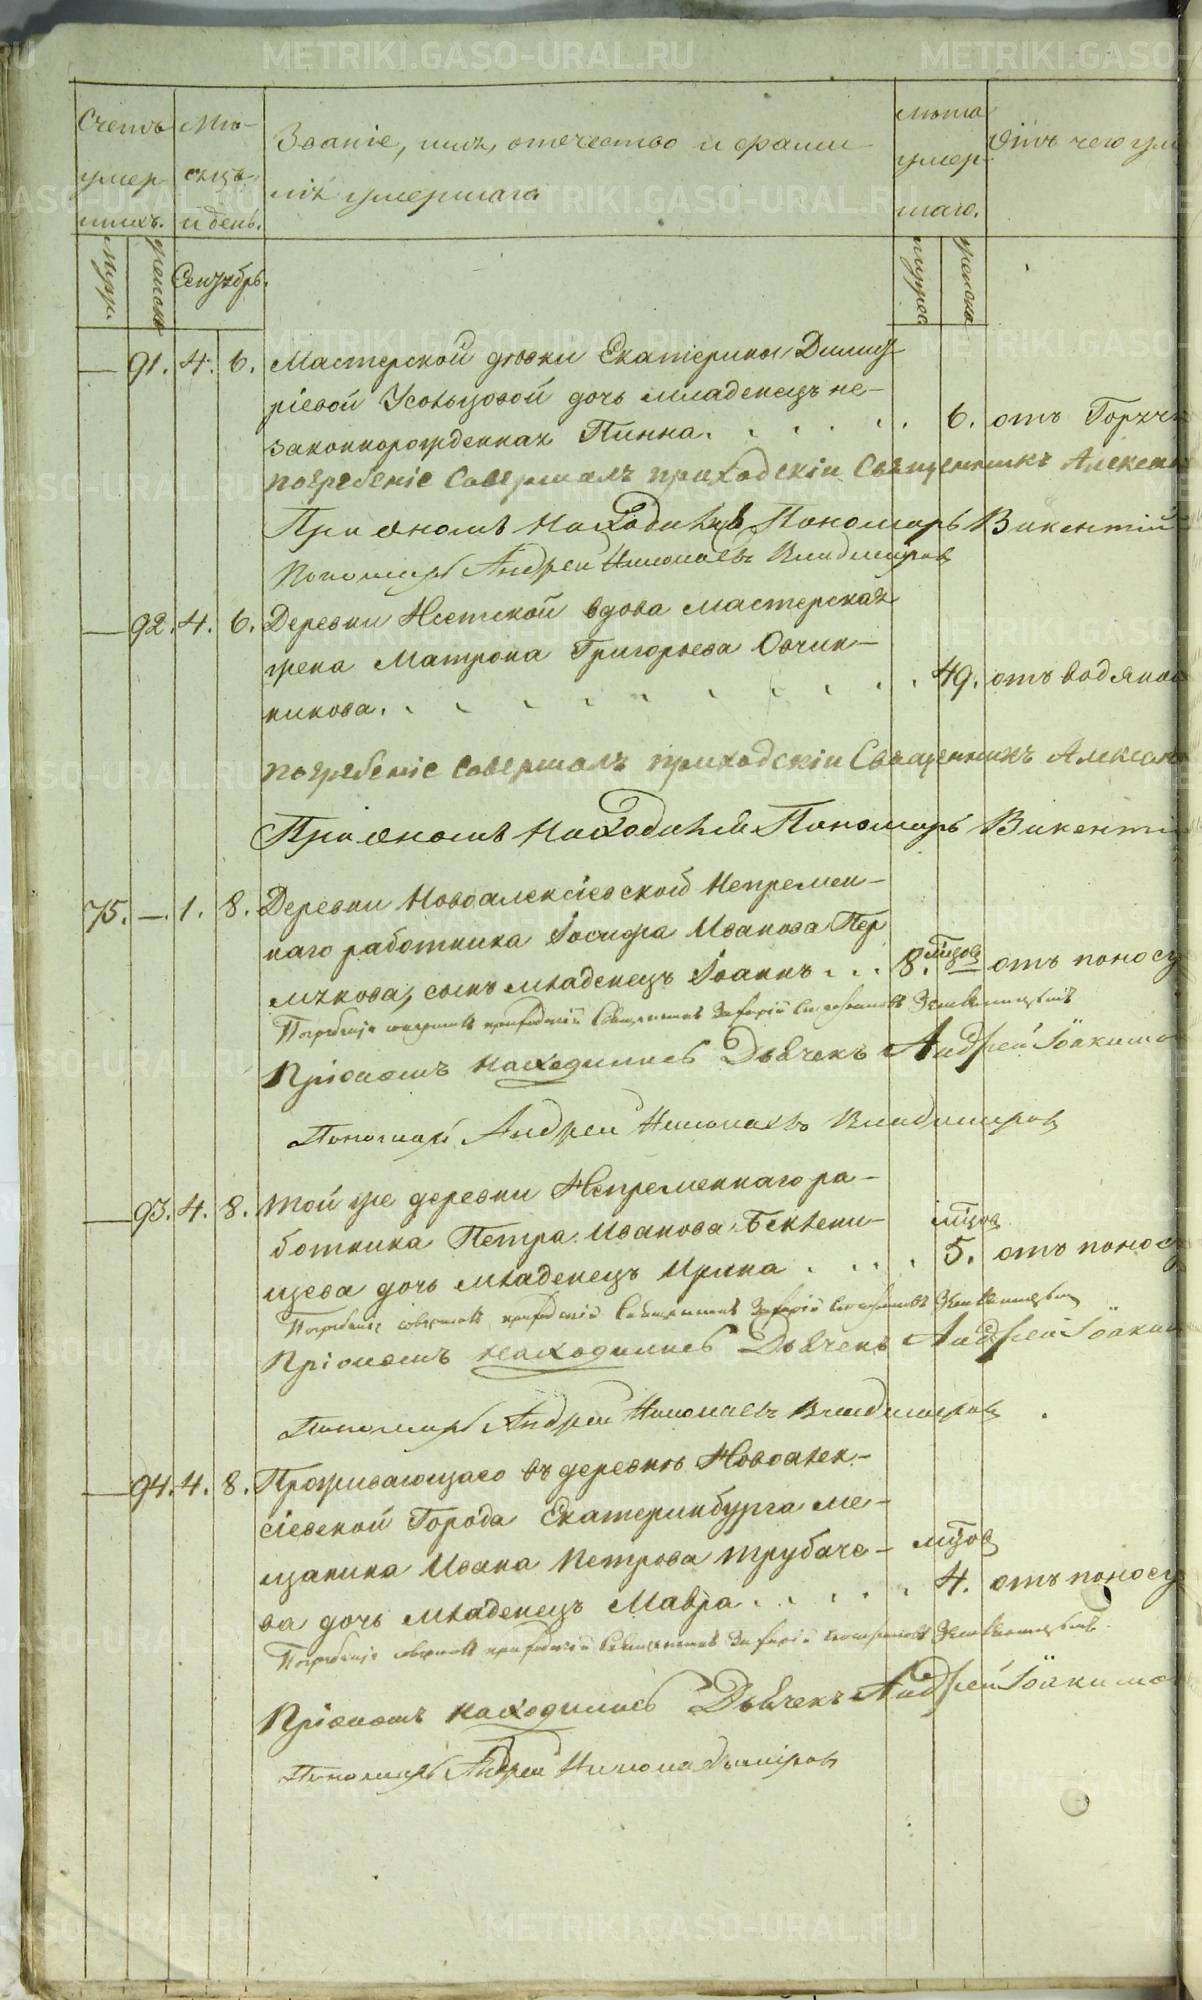 Счетъ умер-шихъ.
Мѣ-сяцъ и день.
Званіе, имя, отечество и фами-
лія умершаго
лѣта умер-шаго.
Отъ чего ум
мужс. женска Сентябрь. мужеска женска
— 91. 4. 6. Мастерской дѣвки Екатерины Димит
ріевой Усольцовой дочь младенецъ не-
законнорожденная Пинна. 6. отъ Горячк
погребеніе Совершалъ приходскіи Священникъ Алекса
При ономъ находился Пономарь Викентій
Пономарь Андреи Николаевъ Владиміровъ
— 92. 4. 6. Деревни Истокской вдова мастерская
жена Матрона Григорьева Овчин-
никова. 49. отъ водяной
погребеніе совершалъ приходскіи Священникъ Алекса
При ономъ находился Пономарь Викенті
75. — 1. 8. Деревни Новоалексіевской Непремен-
наго работника Іосифа Иванова Пер
мякова, сынъ младенецъ Іоаннъ 8. мцовъ отъ поносу
Погребеніе совершалъ приходскій Священникъ
Пріономъ находились Дьячекъ Андрей Іоакимо
Пономарь Андреи Николаевъ Владиміровъ
— 93. 4. 8. Той же деревни Непременнаго ра-
ботника Петра Иванова Бектени-
щева дочь младенецъ Ирина 5. мцовъ отъ поносу
Погребеніе совершалъ приходскій Священникъ
Пріономъ находились Дьячекъ Андрей Іоаким
Пономарь Андреи Николаевъ Владиміровъ
— 94. 4. 8. Проживающаго въ деревнѣ Новоалек-
сіевской Города Екатеринбурга ме-
щанина Ивана Петрова Трубаче-
ва дочь младенецъ Мавра 4. мцовъ отъ поносу
Погребеніе совершалъ приходскій Священникъ
Пріономъ находились Дьячекъ Андрей Іоакимо
Пономарь Андреи
METRIKI.GASO-URAL.RU